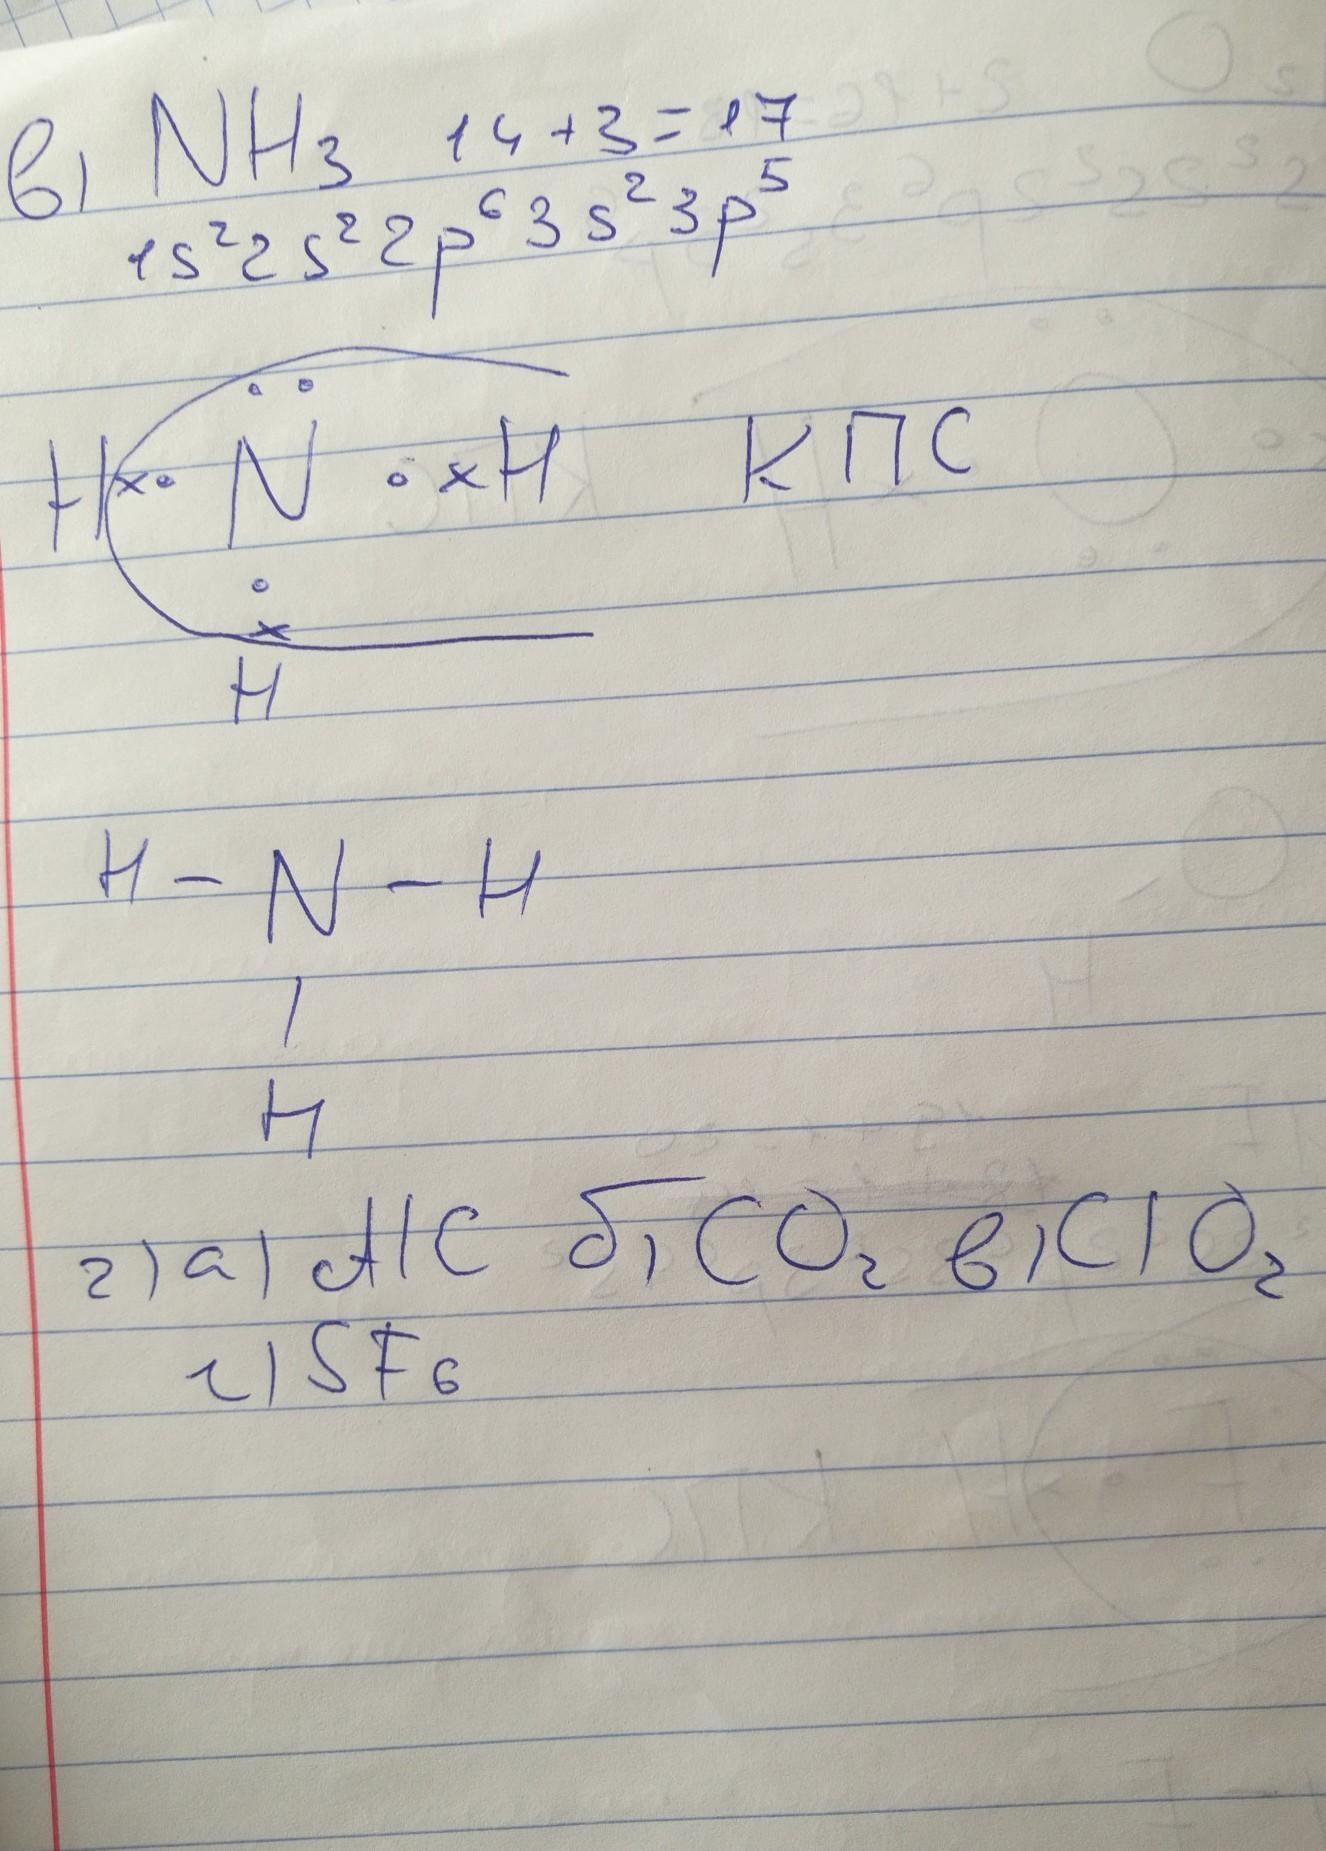 в) NH₃ 14+3=17
1s²2s²2p⁶3s²3p⁵
H ו N •× H КПС
H
H – N – H
H
2) а) AlC б) CO₂ в) ClO₂
г) SF₆